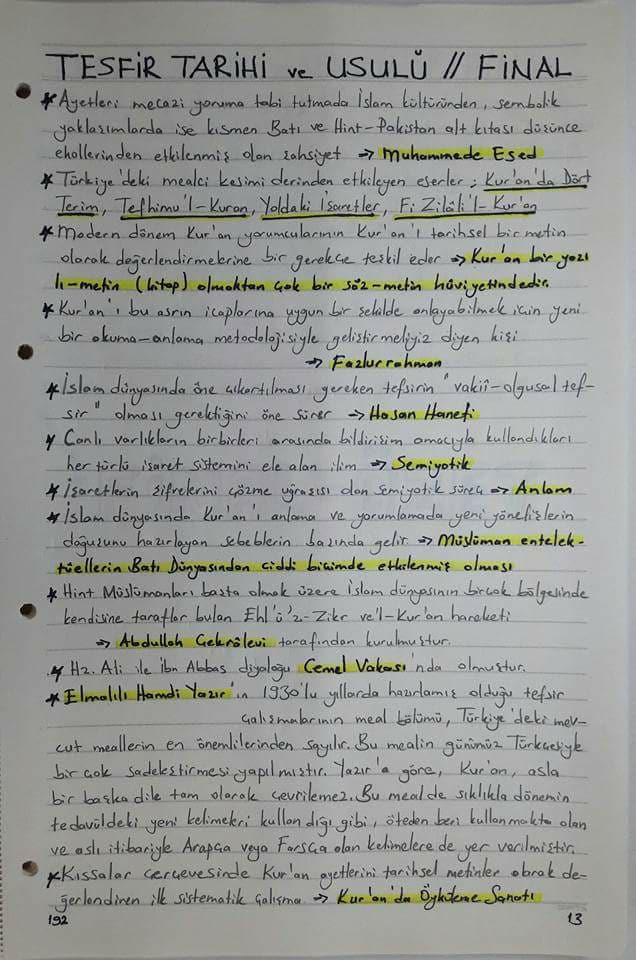 TESFİR TARİHİ ve USULÜ // FİNAL
* Ayetleri mecazi yoruma tabi tutmada İslam kültüründen, sembolik
yaklaşımlarda ise kısmen Batı ve Hint-Pakistan alt kıtası düşünce
ekollerinden etkilenmiş olan şahsiyet → Muhammede Esed
* Türkiye'deki mealci kesimi derinden etkileyen eserler; Kur'an'da Dört
Terim, Tefhimu'l-Kuran, Yoldaki İşaretler, Fi Zilâli'l-Kur'an
* Modern dönem Kur'an yorumcularının Kur'an'ı tarihsel bir metin
olarak değerlendirmelerine bir gerekçe teşkil eder → Kur'an bir yazı
lı-metin (kitap) olmaktan çok bir söz-metin hüviyetindedir.
* Kur'an'ı bu asrın icaplarına uygun bir şekilde anlayabilmek için yeni
bir okuma-anlama metodolojisiyle geliştirmeliyiz diyen kişi
→ Fazlurrahman
* İslam dünyasında öne çıkartılması gereken tefsirin "vakii-olgusal tef-
sir" olması gerektiğini öne sürer → Hasan Hanefi
* Canlı varlıkların birbirleri arasında bildirişim amacıyla kullandıkları
her türlü işaret sistemini ele alan ilim → Semiyotik
* İşaretlerin şifrelerini çözme uğraşısı olan semiyotik süreç → Anlam
* İslam dünyasında Kur'an'ı anlama ve yorumlamada yeni yönelişlerin
doğuşunu hazırlayan sebeblerin başında gelir → Müslüman entelek-
tüellerin Batı Dünyasından ciddi biçimde etkilenmiş olması
* Hint Müslümanları başta olmak üzere İslam dünyasının birçok bölgesinde
kendisine taraflar bulan Ehl'ü'z-Zikr ve'l-Kur'an hareketi
→ Abdullah Çekrâlevi tarafından kurulmuştur.
* Hz. Ali ile İbn Abbas diyaloğu Cemel Vakası'nda olmuştur.
* Elmalılı Hamdi Yazır'ın 1930'lu yıllarda hazırlamış olduğu tefsir
çalışmalarının meal bölümü, Türkiye'deki mev-
cut meallerin en önemlilerinden sayılır. Bu mealin günümüz Türkçesiyle
bir çok sadeleştirmesi yapılmıştır. Yazır'a göre, Kur'an, asla
bir başka dile tam olarak çevrilemez. Bu mealde sıklıkla dönemin
tedavüldeki yeni kelimeleri kullandığı gibi, öteden beri kullanmakta olan
ve aslı itibariyle Arapça veya Farsça olan kelimelere de yer verilmiştir.
* Kıssalar çerçevesinde Kur'an ayetlerini tarihsel metinler olarak de-
ğerlendiren ilk sistematik çalışma → Kur'an'da Öyküleme Sanatı
192
13